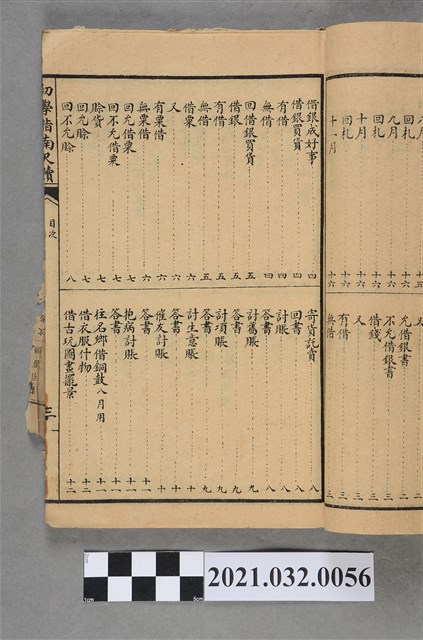 回札
九月
回札 十六
十月 十六
回札 十六
十一月 十六
又
允借銀書 二
不允借銀書 三
借錢 三
又 三
有借 三
無借 三
借銀成好事 四
借銀買貨 四
有借 四
無借 四
回借銀買貨 五
借銀 五
有借 五
無借 五
借粟 六
又 六
有粟借 六
無粟借 六
回允借粟 七
回不允借粟 七
賒貨 七
回允賒 七
回不允賒 八
寄貨託賣 八
回書 八
討賬 八
答書 八
討舊賬 九
答書 九
討項賬 九
答書 九
討生意賬 十
答書 十
催友討賬 十
答書 十一
抱病討賬 十一
答書 十一
往名鄉借銅鼓八月用 十一
借衣服什物 十二
借古玩圖畫擺景 十二
初學指南尺牘
目次
三
2021.032.0056
1cm
5cm